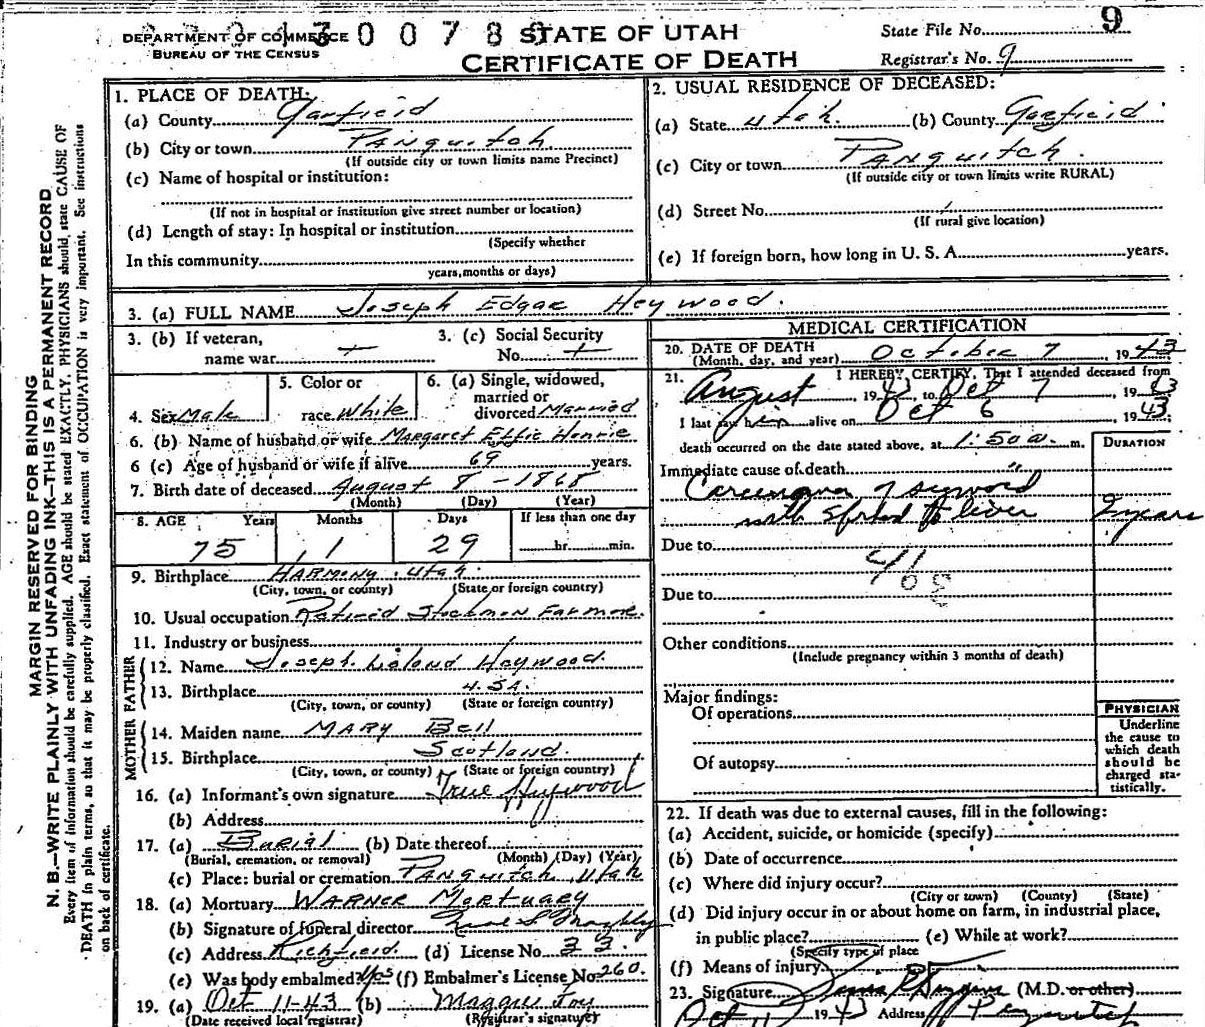 DEPARTMENT OF COMMERCE
BUREAU OF THE CENSUS
STATE OF UTAH
CERTIFICATE OF DEATH
State File No. 9
Registrar's No. 9
MARGIN RESERVED FOR BINDING
N. B.—WRITE PLAINLY WITH UNFADING INK—THIS IS A PERMANENT RECORD
Every item of information should be carefully supplied. AGE should be stated EXACTLY. PHYSICIANS should state CAUSE OF
DEATH in plain terms, so that it may be properly classified. Exact statement of OCCUPATION is very important. See instructions
on back of certificate.
1. PLACE OF DEATH:
(a) County Garfield
(b) City or town Panguitch
(If outside city or town limits name Precinct)
(c) Name of hospital or institution:
(If not in hospital or institution give street number or location)
(d) Length of stay: In hospital or institution
(Specify whether
In this community
years, months or days)
2. USUAL RESIDENCE OF DECEASED:
(a) State Utah. (b) County Garfield
(c) City or town Panguitch.
(If outside city or town limits write RURAL)
(d) Street No.
(If rural give location)
(e) If foreign born, how long in U. S. A. years.
3. (a) FULL NAME Joseph Edgar Heywood.
3. (b) If veteran,
name war
3. (c) Social Security
No.
4. Sex Male
5. Color or
race White
6. (a) Single, widowed,
married or
divorced Married
6. (b) Name of husband or wife Margaret Effie Henrie
6 (c) Age of husband or wife if alive 69 years.
7. Birth date of deceased August 8 - 1868
(Month) (Day) (Year)
8. AGE Years Months Days If less than one day
75 1 29 hr. min.
9. Birthplace Harmony, Utah.
(City, town, or county) (State or foreign country)
10. Usual occupation Retired Stockman Farmer.
11. Industry or business
FATHER
12. Name Joseph Leland Heywood.
13. Birthplace U.S.A.
(City, town, or county) (State or foreign country)
MOTHER
14. Maiden name Mary Bell
15. Birthplace Scotland.
(City, town, or county) (State or foreign country)
16. (a) Informant's own signature True Heywood
(b) Address
17. (a) Burial (b) Date thereof
(Burial, cremation, or removal) (Month) (Day) (Year)
(c) Place: burial or cremation Panguitch, Utah
18. (a) Mortuary Warner Mortuary
(b) Signature of funeral director
(c) Address Richfield. (d) License No. 33.
(e) Was body embalmed? Yes (f) Embalmer's License No. 260.
19. (a) Oct 11-43 (b)
(Date received local registrar) (Registrar's signature)
MEDICAL CERTIFICATION
20. DATE OF DEATH
(Month, day, and year) October 7, 1943
21. I HEREBY CERTIFY, That I attended deceased from
August, 1943, to Oct 7, 1943
I last saw him alive on Oct 6, 1943.
death occurred on the date stated above, at 1:50 a. m.
DURATION
Immediate cause of death
Carcinoma of sigmoid
with spread to liver 2 years
Due to
Due to
Other conditions
(Include pregnancy within 3 months of death)
Major findings:
Of operations
Of autopsy
PHYSICIAN
Underline
the cause to
which death
should be
charged sta-
tistically.
22. If death was due to external causes, fill in the following:
(a) Accident, suicide, or homicide (specify)
(b) Date of occurrence
(c) Where did injury occur?
(City or town) (County) (State)
(d) Did injury occur in or about home on farm, in industrial place,
in public place? (e) While at work?
(Specify type of place
(f) Means of injury
23. Signature (M.D. or other)
Oct 11 1943 Address Panguitch